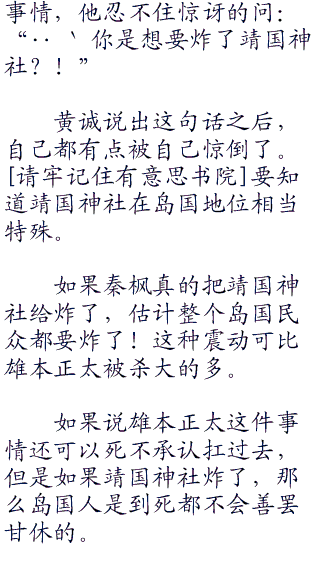 事情，他忍不住惊讶的问：
“·· ‵ 你是想要炸了靖国神
社？！”
黄诚说出这句话之后，
自己都有点被自己惊倒了。
[请牢记住有意思书院]要知
道靖国神社在岛国地位相当
特殊。
如果秦枫真的把靖国神
社给炸了，估计整个岛国民
众都要炸了！这种震动可比
雄本正太被杀大的多。
如果说雄本正太这件事
情还可以死不承认扛过去，
但是如果靖国神社炸了，那
么岛国人是到死都不会善罢
甘休的。